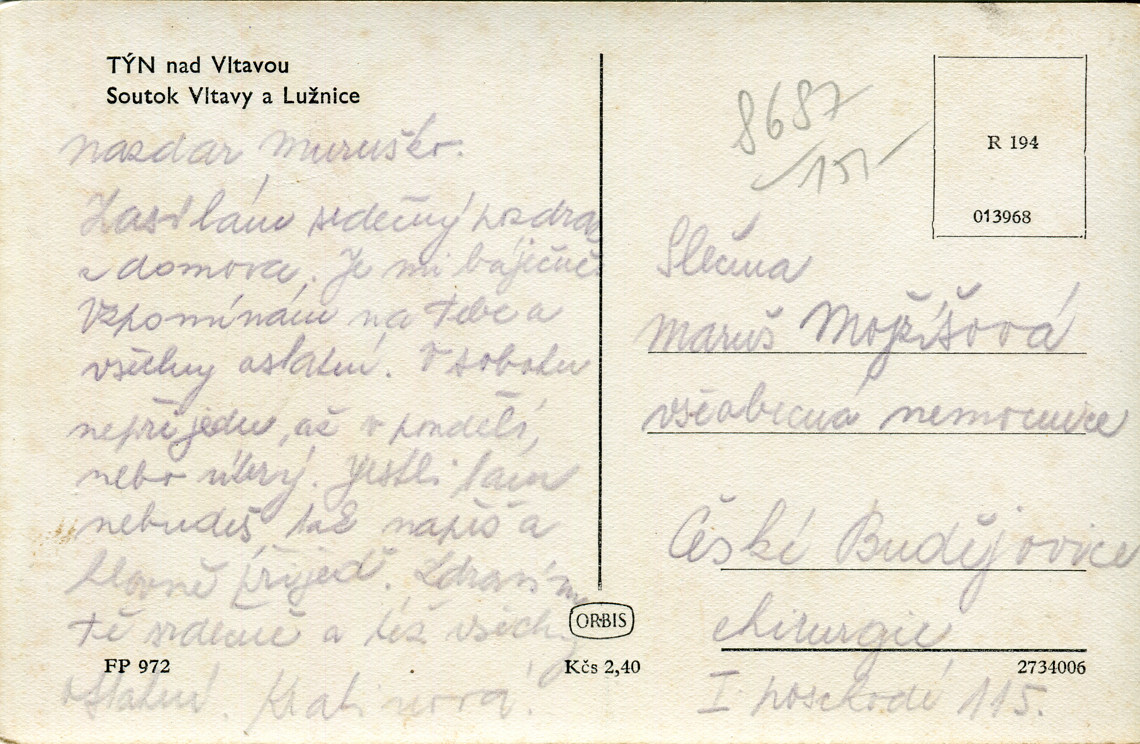 TÝN nad Vltavou
Soutok Vltavy a Lužnice
Nazdar Muruško.
Zasílám srdečný pozdrav
z domova. Je mi báječně
Vzpomínám na Tebe a
všechny ostatní. V sobotu
nepřijedu, až v pondělí,
nebo úterý. Jestli tam
nebudeš, tak napiš a
hlavně přijeď. Zdravím
Tě srdečně a též všechny
ostatní. Kalinová!
FP 972
ORBIS
Kčs 2,40
8687
151-
R 194
013968
Slečna
Maruš Mojžíšová
všeobecná nemocnice
České Budějovice
chirurgie
I poschodí 115.
2734006